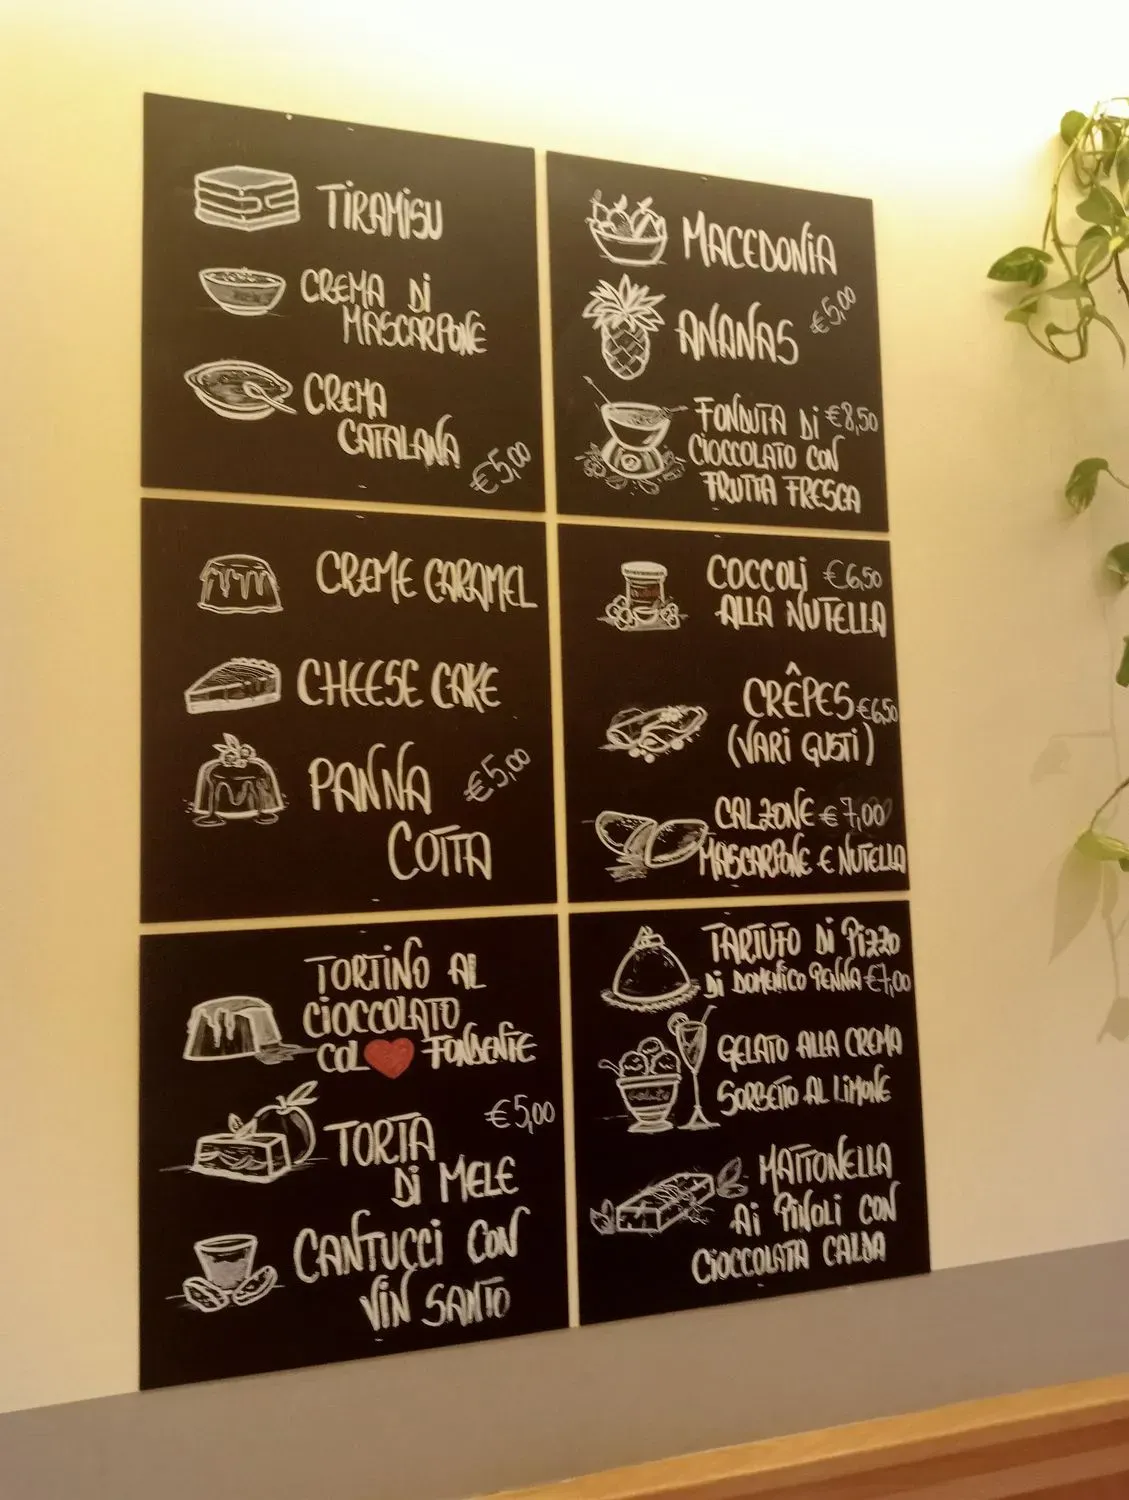 TIRAMISU
CREMA DI
MASCARPONE
CREMA
CATALANA
€5,00
CREME CARAMEL
CHEESE CAKE
PANNA €5,00
COTTA
TORTINO AL
CIOCCOLATO
COL FONDENTE
€5,00
TORTA
DI MELE
CANTUCCI CON
VIN SANTO
MACEDONIA
€5,00
ANANAS
FONDUTA DI €8,50
CIOCCOLATO CON
FRUTTA FRESCA
COCCOLI €6,50
ALLA NUTELLA
CRÊPES €6,50
(VARI GUSTI)
CALZONE €7,00
MASCARPONE E NUTELLA
TARTUFO DI PIZZO
DI DOMENICO PENNA €7,00
GELATO ALLA CREMA
SORBETTO AL LIMONE
MATTONELLA
AI PINOLI CON
CIOCCOLATA CALDA